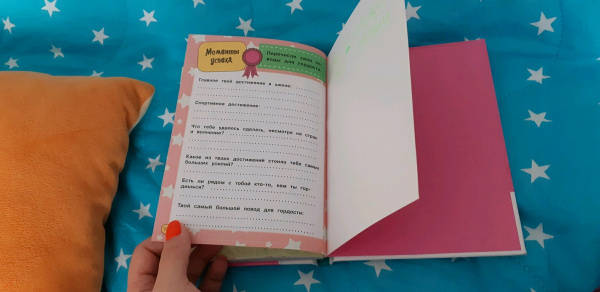 Моменты
успеха
Перечисли свои по-
воды для гордости
Главное твоё достижение в школе:
Спортивное достижение:
Что тебе удалось сделать, несмотря на страх
и волнение?
Какое из твоих достижений стоило тебе самых
больших усилий?
Есть ли рядом с тобой кто-то, кем ты гор-
дишься?
Твой самый большой повод для гордости: